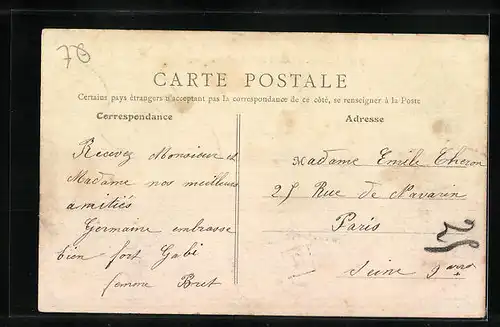 78
CARTE POSTALE
Certains pays étrangers n'acceptant pas la correspondance de ce côté, se renseigner à la Poste
Correspondance
Recevez Monsieur et
Madame nos meilleures
amitiés
Germaine embrasse
bien fort Gabi
Bret
Adresse
Madame Emile Theron
25 Rue de Navarin
Paris
Seine 9
25